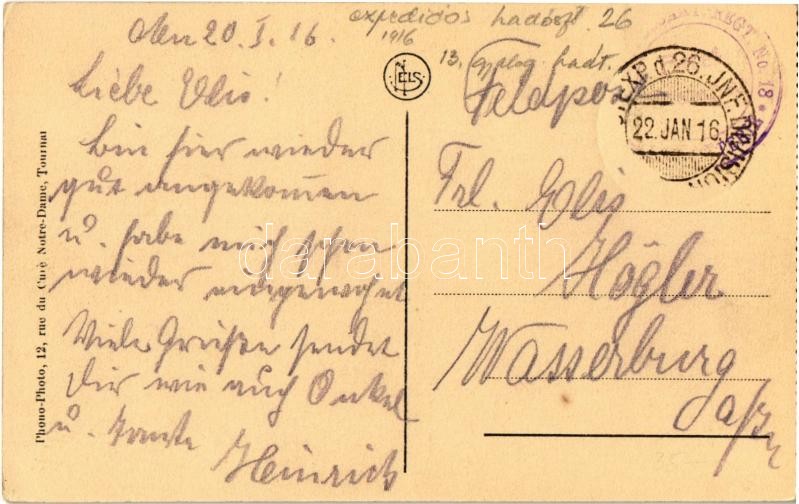 Den 20. I. 16.
expediós hadoszt. 26
1916
13. gyalog hadt.
Liebe Elis!
Bin hier wieder
gut angekommen
u. habe mich schon
wieder eingewöhnt
Viele Grüße sendet
Dir wie auch Onkel
u. Tante
Heinrich
NELS
Feldpost
EXP. d. 26. INF. DIVISION
22. JAN 16.
REGT No 18
Frl. Elis
Högler
Wasserburg
Phono-Photo, 12, rue du Curé Notre-Dame, Tournai
darabanth